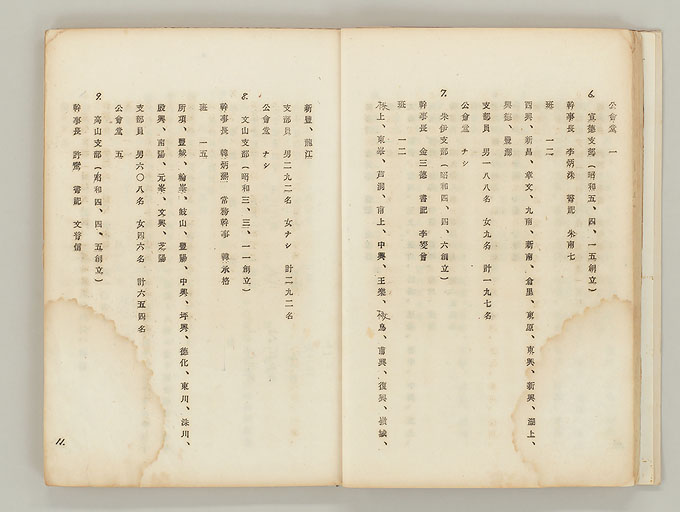 公會堂 一
6. 宣德支部(昭和五、四、一五創立)
幹事長 李炳洙 書記 朱南七
班 一二
四興、新昌、章文、九南、新南、倉里、東原、東興、新興、湖上、
興德、豐潤
支部員 男一八八名 女九名 計一九七名
公會堂 ナシ
7. 朱伊支部(昭和四、四、六創立)
幹事長 金三德 書記 李
班 一二
上、東峯、芦洞、南上、中興、王、島、富興、復興、
新豐、龍江
支部員 男二九二名 女ナシ 計二九二名
公會堂 ナシ
8. 文山支部(昭和三、三、一一創立)
幹事長 韓炳 常務幹事 韓承格
班 一五
所項、豐城、輪峯、岐山、豐陽、中興、坪興、德化、東川、洙川、
殷興、南陽、元峯、文興、芝陽
支部員 男六〇八名 女四六名 計六五四名
公會堂 五
9. 高山支部(昭和四、四、五創立)
幹事長 許 書記 文信
11.